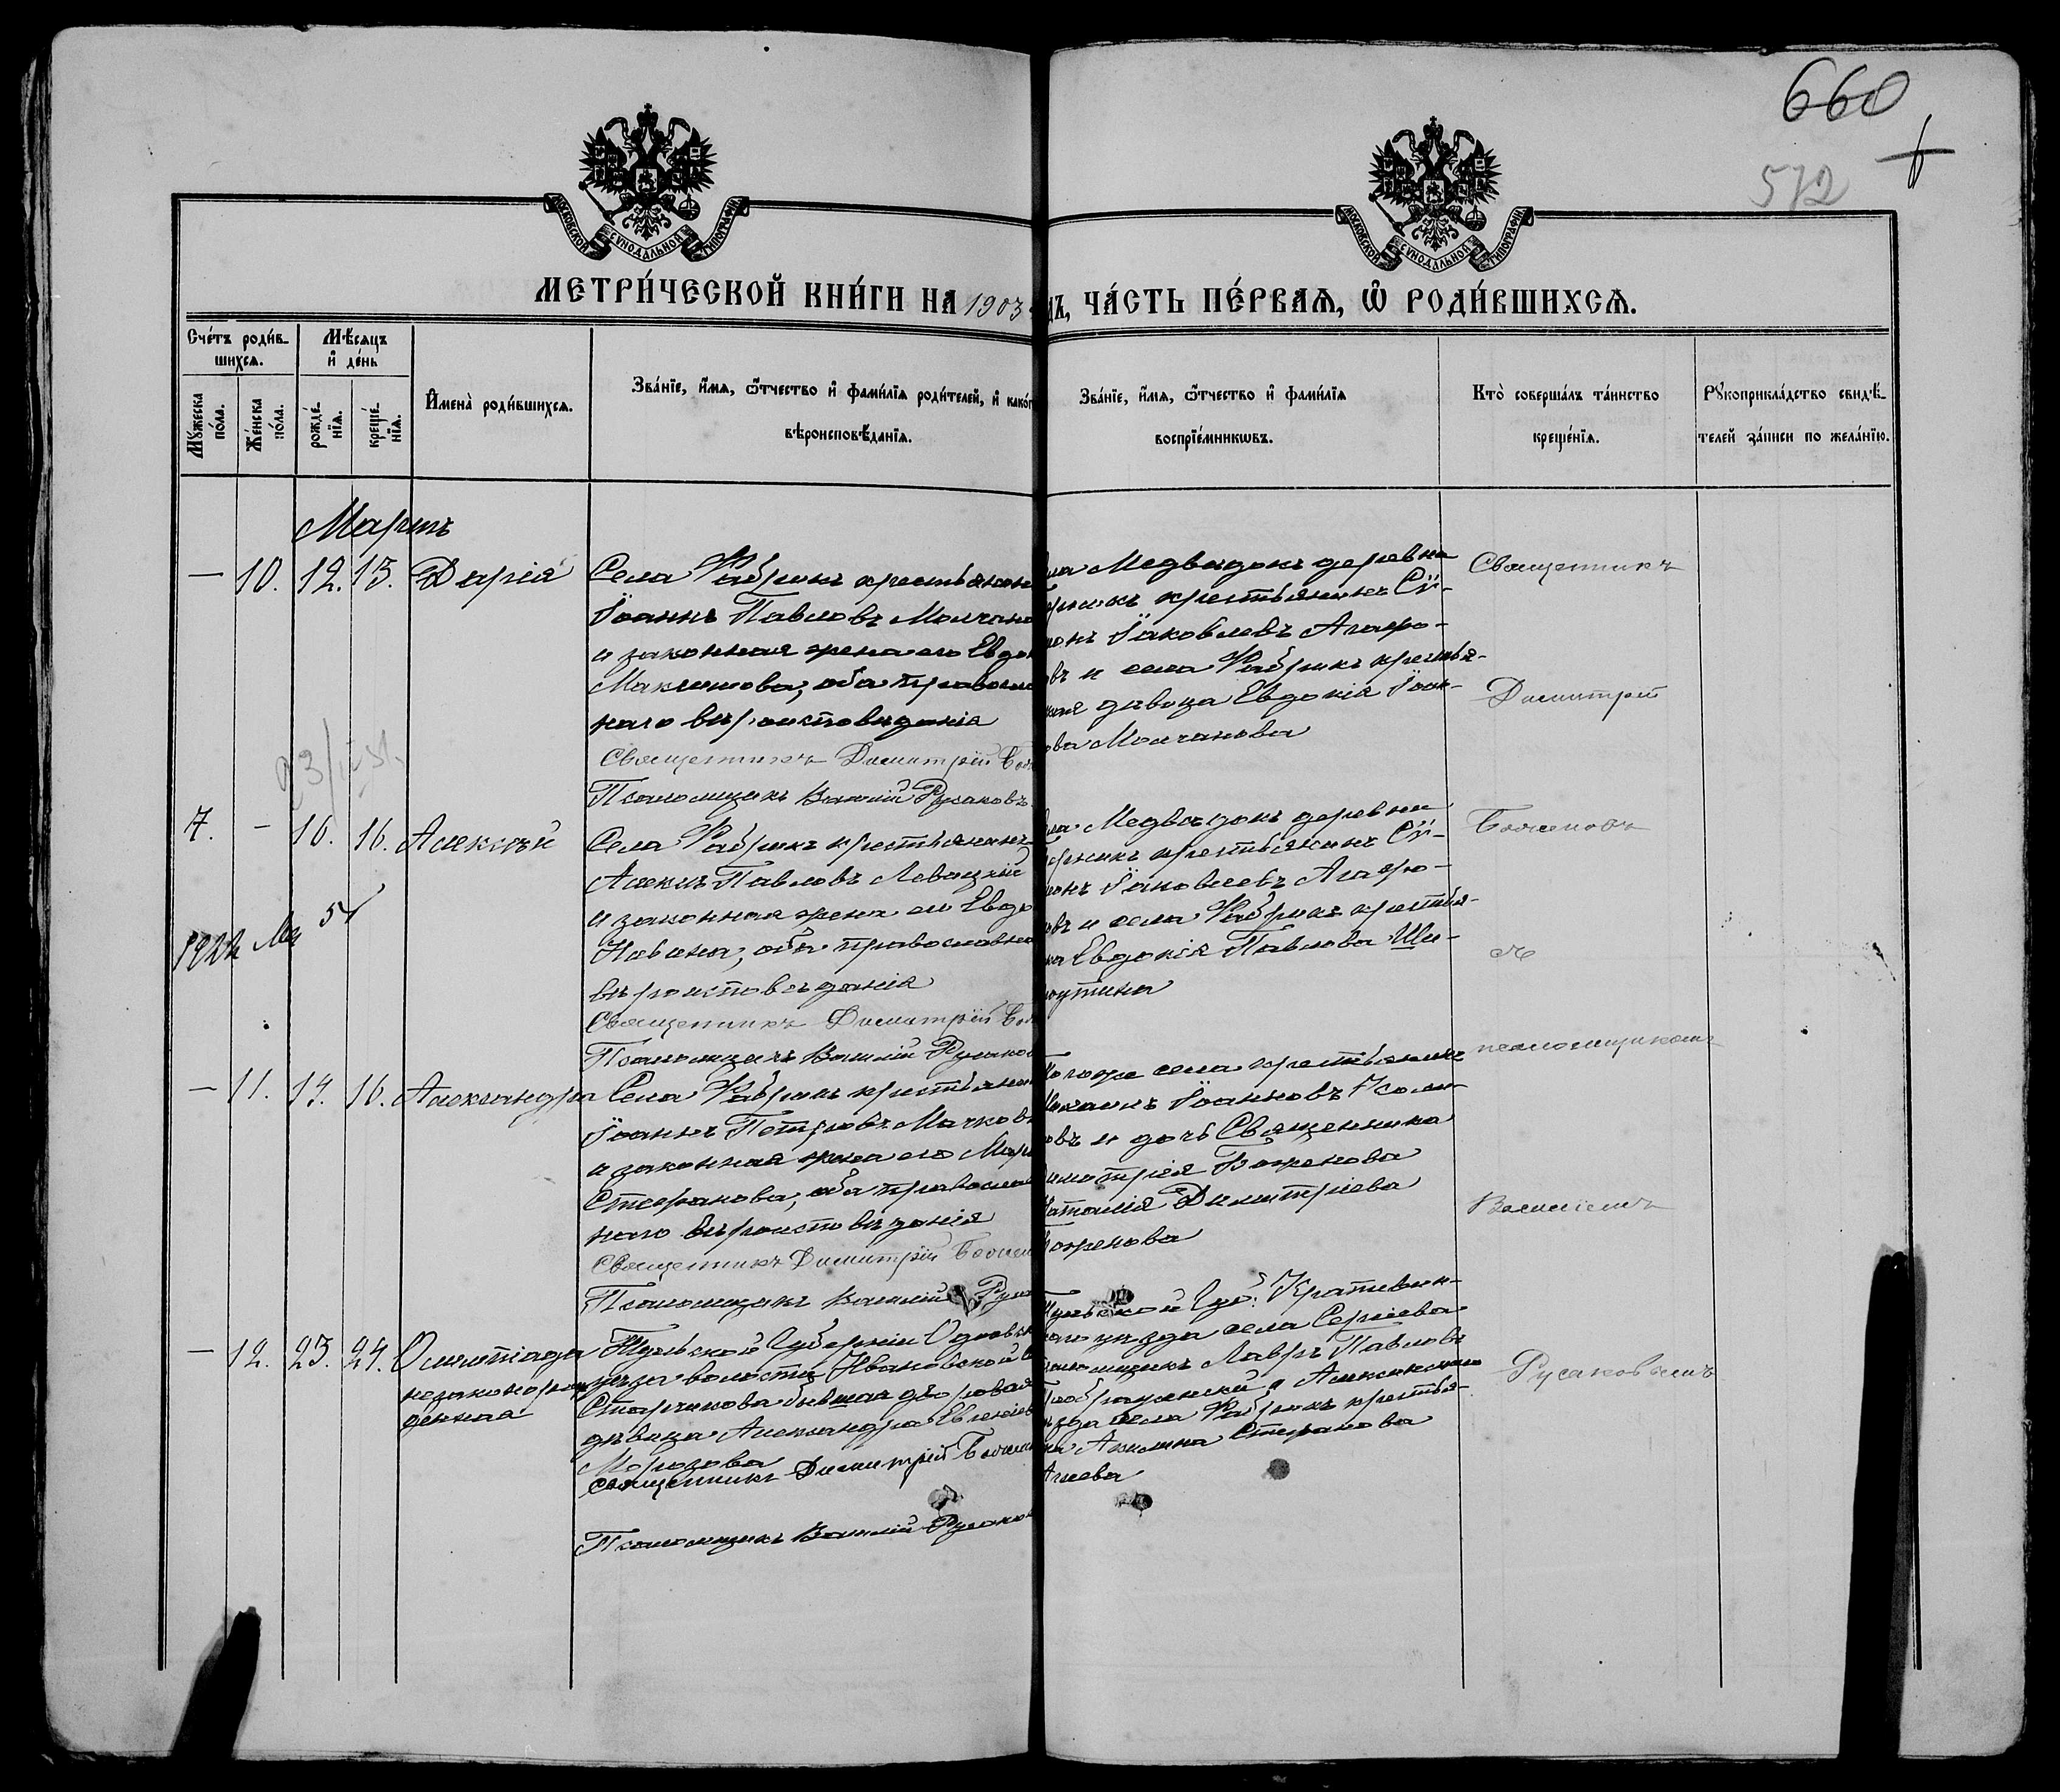 660
572
МОСКОВСКОЙ СУНОДАЛЬНОЙ ТИПОГРАФІИ
МОСКОВСКОЙ СУНОДАЛЬНОЙ ТИПОГРАФІИ
МЕТРИ́ЧЕСКОЙ КНИ́ГИ НА 1903
ДЪ, ЧА́СТЬ ПЕ́РВАЯ, Ѡ҆ РОДИ́ВШИХСЯ.
Сче́тъ роди́в-
шихся.
Мѣ́сяцъ
и҆ де́нь
Мꙋ́жеска
по́ла.
Же́нска
по́ла.
рожде́-
нїя.
креще́-
нїя.
И҆мена̀ роди́вшихся.
Зва́нїе, и҆́мя, ѻ҆́тчество и҆ фами́лїя роди́телей, и҆ како́г
вѣроисповѣ́данїя.
Зва́нїе, и҆́мя, ѻ҆́тчество и҆ фами́лїя
воспрїе́мникѡвъ.
Кто̀ соверша́лъ та́инство
креще́нїя.
Рꙋкоприкла́дство свидѣ́-
телей за́писи по жела́нїю.
Мартъ
— 10. 12. 13. Дарія
Села Фабрикъ крестьянин
Іоаннъ Павловъ Молчано
и законная жена его Евдо
Максимова; оба православ
наго вѣроисповѣданія
Священникъ Димитрій Бож
Псаломщикъ Василій Русаковъ
ла Медвѣдокъ деревни
крестьянинъ Сѵ-
монъ Іаковлевъ Агафо-
въ и села Фабрикъ крестья-
ская дѣвица Евдокія Іоан-
ова Молчанова
Священникъ
Димитрій
7. — 16. 16. Алексѣй
Села Фабрикъ крестьянинъ
Павловъ Левацкій
и законная жена его Евдо
оба православна
вѣроисповѣданія
Священникъ Димитрій Бож
Псаломщикъ Василій Русаков
ла Медвѣдокъ деревни
крестьянинъ Сѵ-
монъ Іаковлевъ Агафо-
въ и села Фабрикъ крестья-
ка Евдокія Павлова Ши-
рутина
Боженовъ
съ
псаломщикомъ
— 11. 14. 16. Александра
Села Фабрикъ крестьянин
Іоаннъ Петровъ Мачковъ
и законная жена его Мар
Стефанова; оба православ
наго вѣроисповѣданія
Священникъ Димитрій Божен
Псаломщикъ Василій Руса
Того же села крестьянинъ
Михаилъ Іоанновъ
овъ и дочь Священника
Димитрія Боженова
Наталія Димитріева
Боженова
Василіемъ
— 12. 23. 24. Олимпіада
незаконорож
денная
Тульской Губерніи Одоевск
уѣзда волости Ивановской с
Старикова бывшая дворовая
дѣвица Александра Евгеніев
Морозова
Священникъ Димитрій Божен
Псаломщикъ Василій Русаков
Тульской Губ. Крапивен-
скаго уѣзда села Сергіева
псаломщикъ Лавръ Павловъ
Преображенскій и Алексинскаго
уѣзда села Фабрикъ крестья-
ка Акилина Стефанова
Агѣева
Русаковымъ